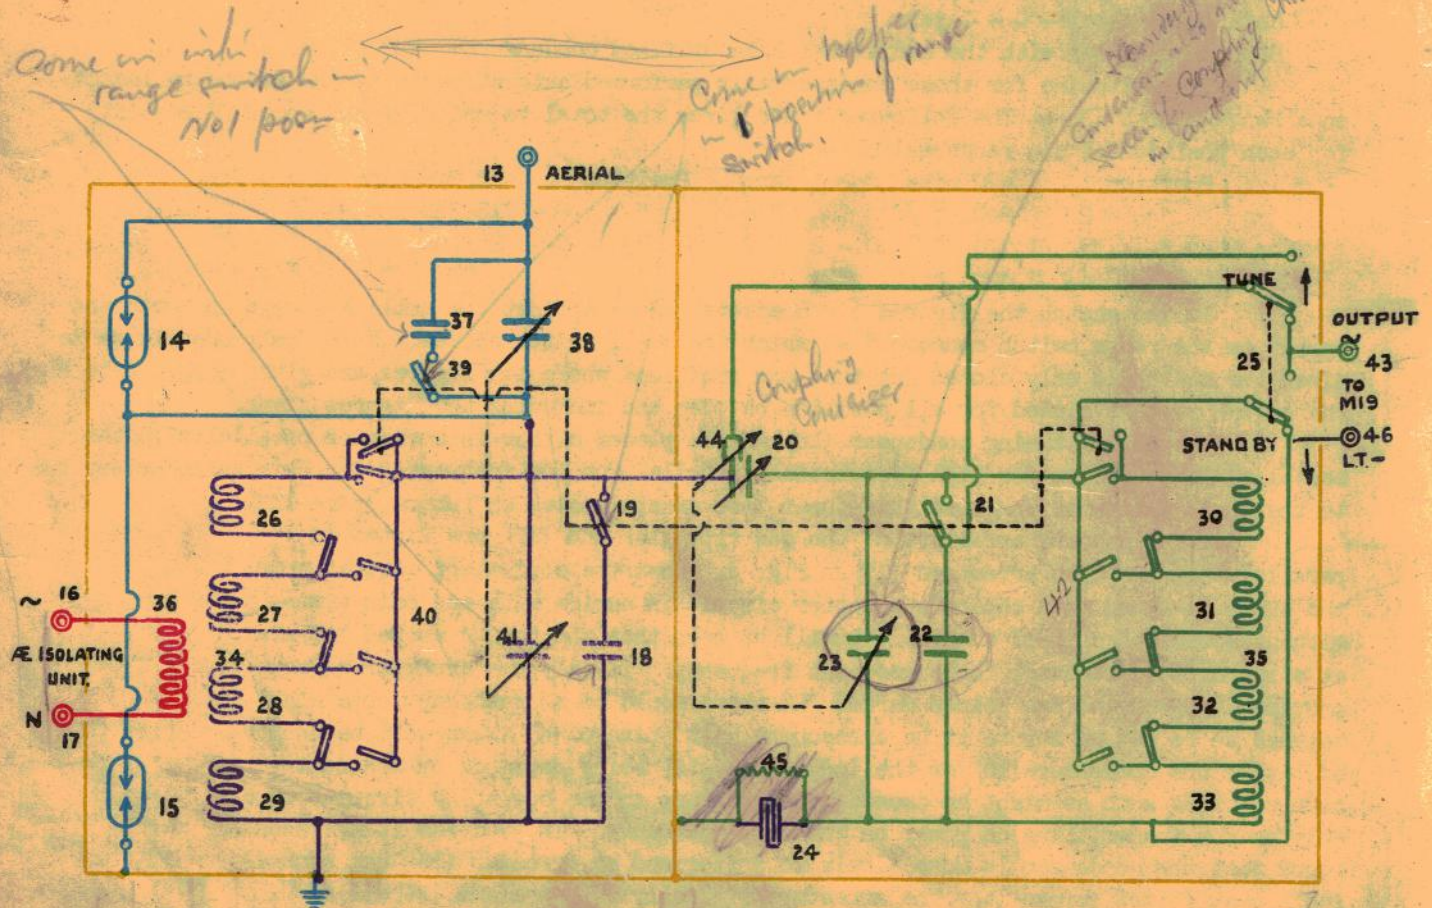 Come in with
range switch in
Not pos
Come in together
in 8 position of range
switch.
Secondary
Condenser also
Coupling
in
13 AERIAL
14
37
38
39
TUNE
OUTPUT
~
43
25
TO
M19
STAND BY
46
LT.-
Coupling
Condenser
44
20
19
21
26
30
~
16
36
27
40
42
31
Æ ISOLATING
UNIT.
34
41
18
23
22
35
28
32
N
17
15
29
45
33
24